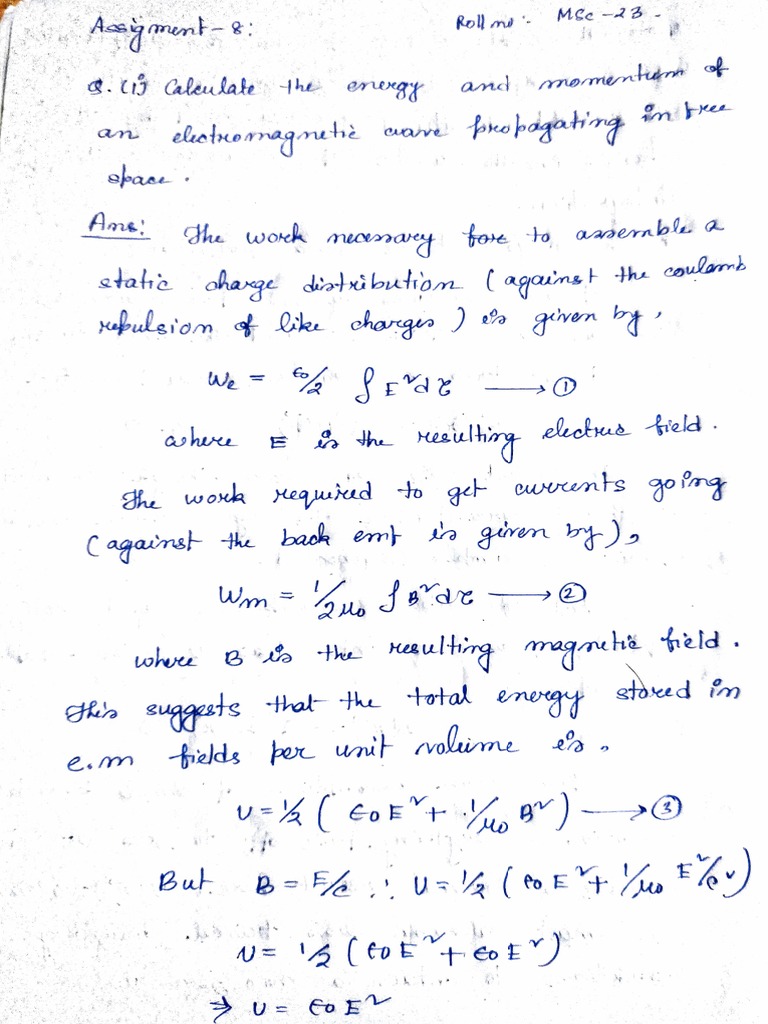 Assigment-8:
Roll no:- MSc-23.
Q.(1) Calculate the energy and momentum of
an electromagnetic wave propagating in free
space.
Ans: The work necessary fore to assemble a
static charge distribution (against the coulamb
repulsion of like charges) is given by,
We = ε0/2 ∫ E²dτ ⟶ ①
where E is the resulting electrus field.
The work required to get currents going
(against the back emf is given by),
Wm = 1/2μ0 ∫ B²dτ ⟶ ②
where B is the resulting magnetic field.
This suggests that the total energy stored in
e.m fields per unit volume is.
U = 1/2 ( ε0 E² + 1/μ0 B² ) ⟶ ③
But B = E/c ∴ U = 1/2 ( ε0 E² + 1/μ0 E²/c² )
U = 1/2 ( ε0 E² + ε0 E² )
⇒ U = ε0 E²